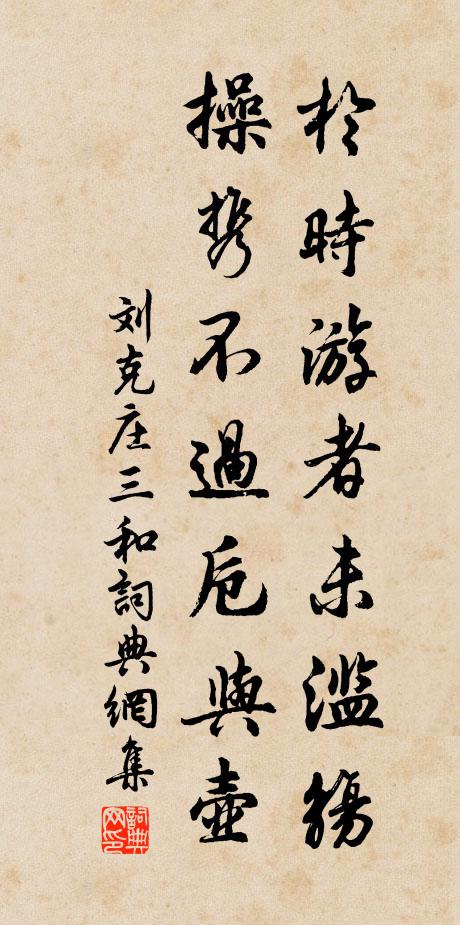 於時游者未濫觴
操携不過卮與壺
刘克庄三和詞典網集
詞典
网印